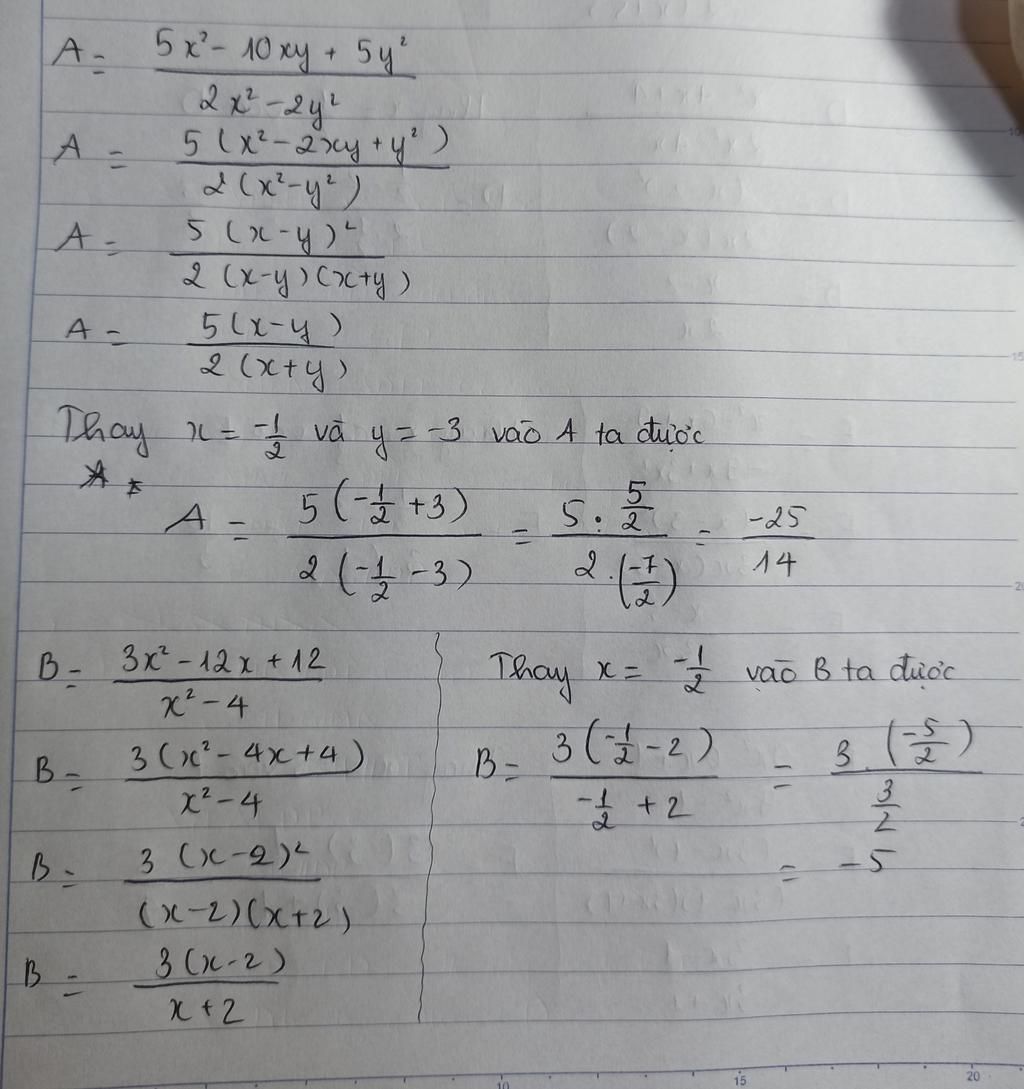 A = (5x² - 10xy + 5y²)/(2x² - 2y²)
A = 5(x² - 2xy + y²)/2(x² - y²)
A = 5(x - y)²/2(x - y)(x + y)
A = 5(x - y)/2(x + y)
Thay x = -1/2 và y = -3 vào A ta được
A = 5(-1/2 + 3)/2(-1/2 - 3) = (5 . 5/2)/(2 . (-7/2)) = -25/14
B = (3x² - 12x + 12)/(x² - 4)
B = 3(x² - 4x + 4)/(x² - 4)
B = 3(x - 2)²/(x - 2)(x + 2)
B = 3(x - 2)/(x + 2)
Thay x = -1/2 vào B ta được
B = 3(-1/2 - 2)/(-1/2 + 2) = 3 . (-5/2)/(3/2)
= -5
10 15 20